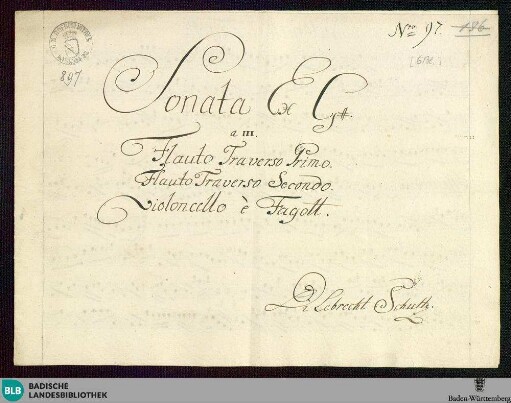 Nro 97. 186
897
Sonata Ex C♯.
a III.
Flauto Traverso Primo.
Flauto Traverso Secondo.
Violoncello è Fagott.
Di Lebrecht Schulth.
BLB BADISCHE
LANDESBIBLIOTHEK
Baden-Württemberg